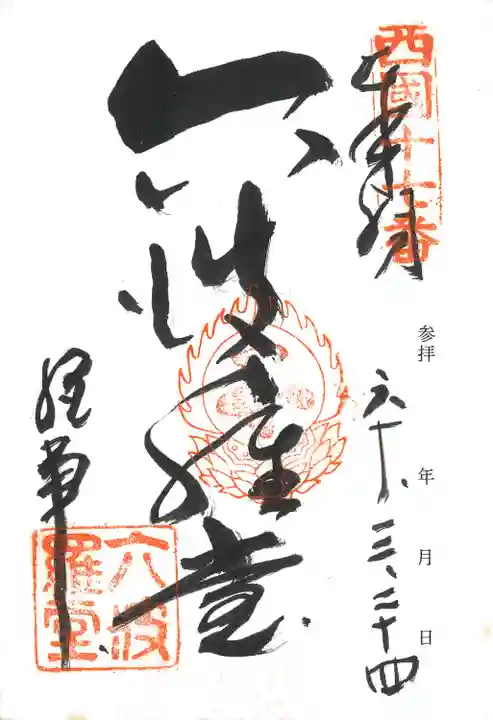 西國十七番
参拝 六十年三月二十四日
六波羅堂
六波
羅堂